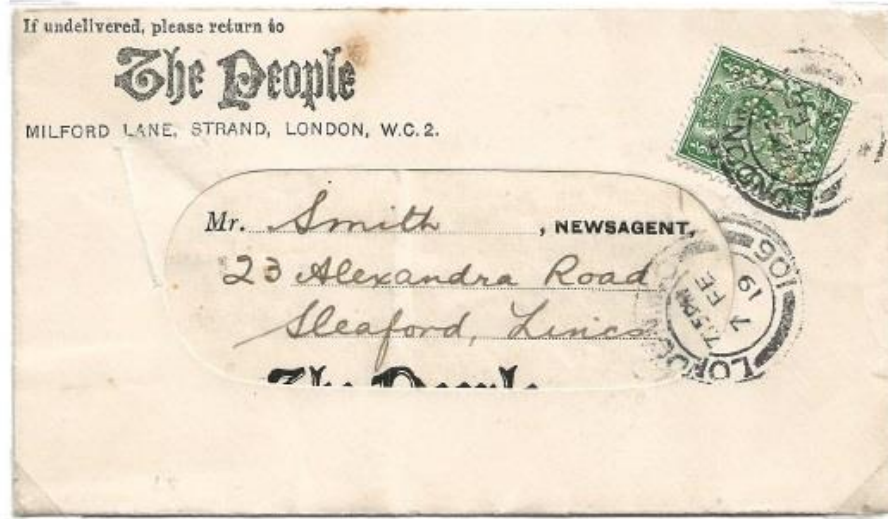 If undelivered, please return to
The People
MILFORD LANE, STRAND, LONDON, W.C.2.
Mr. Smith, NEWSAGENT,
23 Alexandra Road
Sleaford, Lincs
The People
LONDON
LONDON
106
7.15PM
7 FE
19